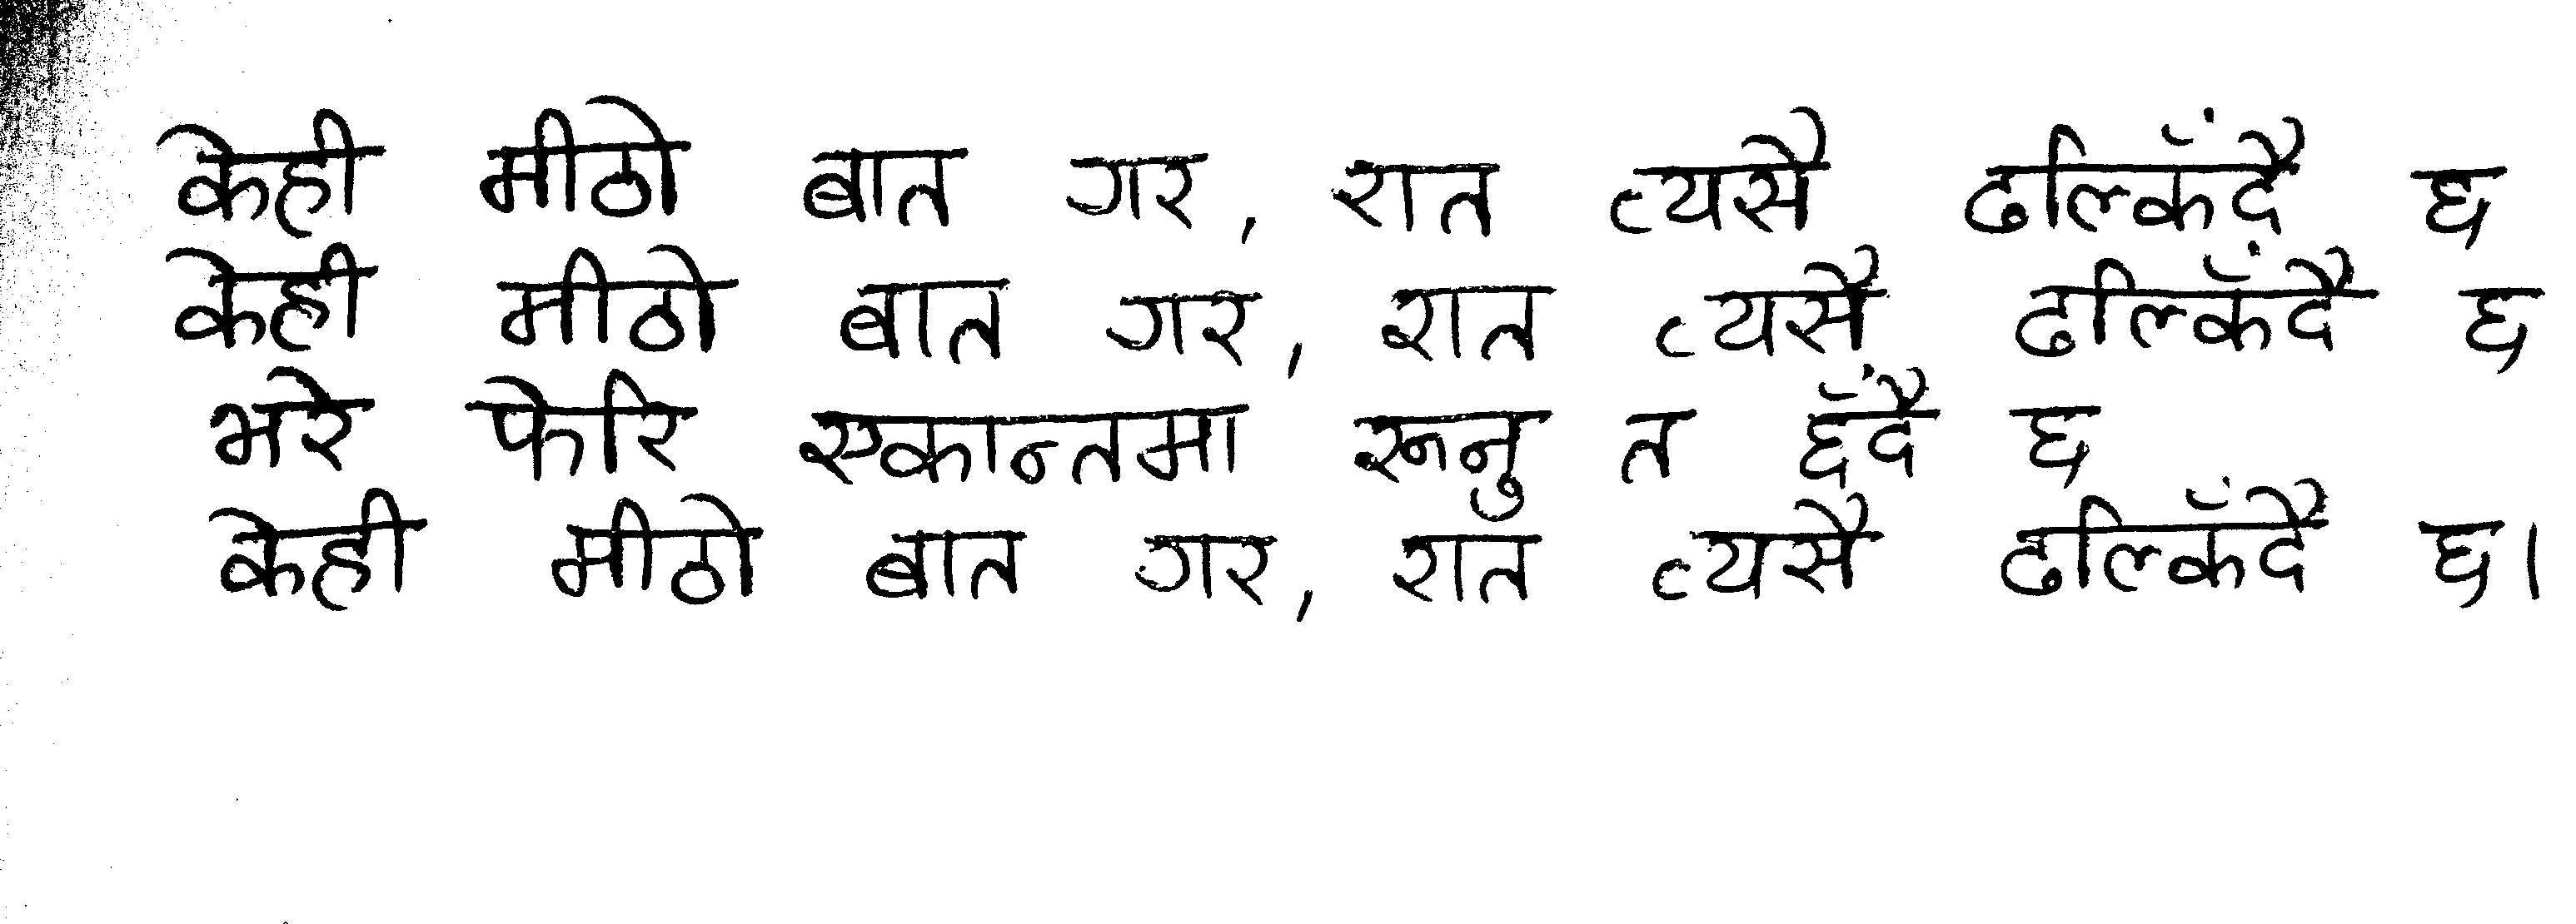 केही मीठो बात गर, रात त्यसै ढल्किँदै छ
केही मीठो बात गर, रात त्यसै ढल्किँदै छ
भरे फेरि एकान्तमा रूनु त छँदै छ
केही मीठो बात गर, रात त्यसै ढल्किँदै छ।